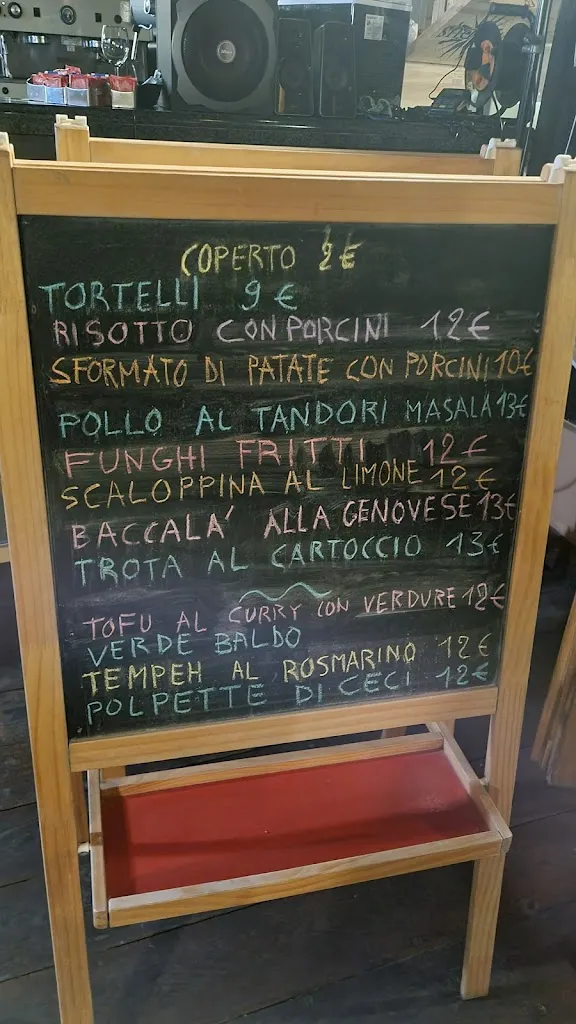 COPERTO 2€
TORTELLI 9€
RISOTTO CON PORCINI 12€
SFORMATO DI PATATE CON PORCINI 10€
POLLO AL TANDORI MASALA 13€
FUNGHI FRITTI 12€
SCALOPPINA AL LIMONE 12€
BACCALA' ALLA GENOVESE 13€
TROTA AL CARTOCCIO 13€
TOFU AL CURRY CON VERDURE 12€
VERDE BALDO
TEMPEH AL ROSMARINO 12€
POLPETTE DI CECI 12€